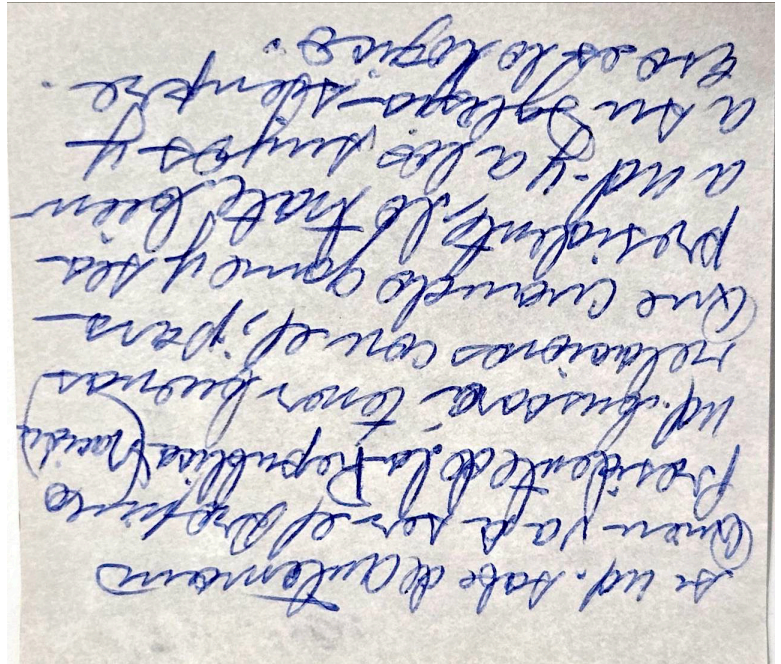 si ud. sabe de antemano
Quien va a ser el próximo
Presidente de la Republica
ud. buscará tener buenas
relaciones con el, para
Que cuando gane y sea
presidente, lo trate bien
a ud - y a los suyos y
a su Iglesia - siempre.
Eso es lo logico.